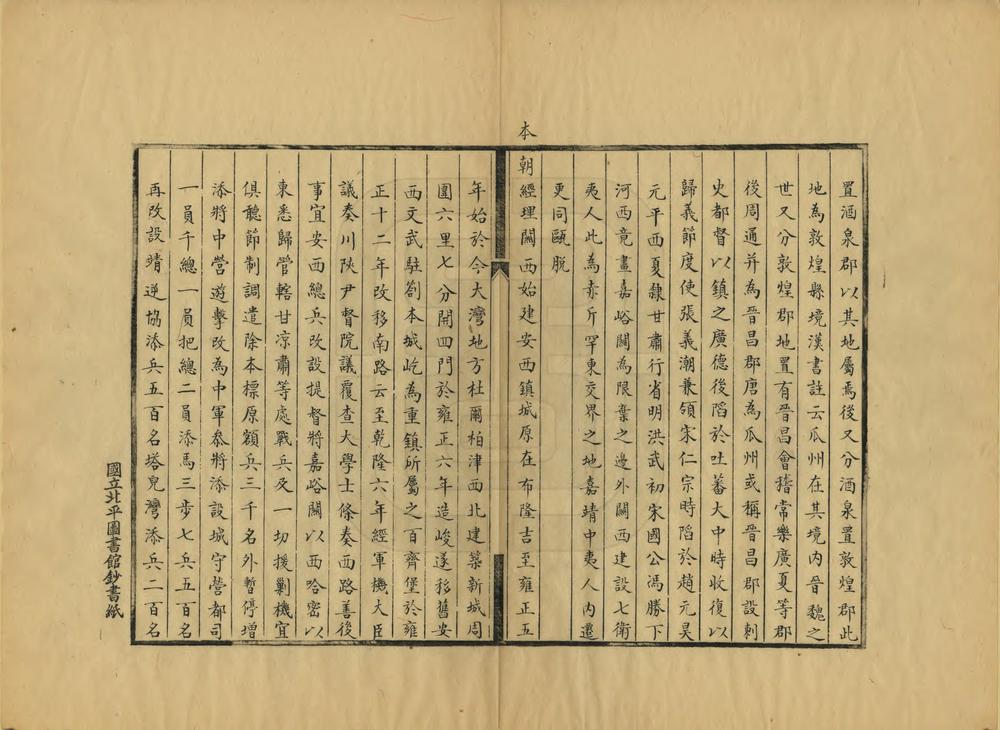 置酒泉郡以其地屬焉後又分酒泉置敦煌郡此
地為敦煌縣境漢書註云瓜州在其境内晉魏之
世又分敦煌郡地置有晉昌會稽常樂廣夏等郡
後周通并為晉昌郡唐為瓜州或稱晉昌郡設刺
史都督以鎮之廣德後䧟於吐蕃大中時收復以
歸義節度使張義潮兼領宋仁宗時䧟於趙元昊
元平西夏隸甘肅行省明洪武初宋國公馮勝下
河西竟畫嘉峪關為限棄之邊外關西建設七衛
夷人此為赤斤罕東交界之地嘉靖中夷人内遷
更同甌脱
本
朝經理關西始建安西鎮城原在布隆吉至雍正五
年始於今大灣地方杜爾柏津西北建築新城周
圍六里七分開四門於雍正六年造峻遂移舊安
西文武駐劄本城屹為重鎮所屬之百齊堡於雍
正十二年改移南路云至乾隆六年經軍機大臣
議奏川陝尹督院議覆查大學士條奏西路善後
事宜安西總兵改設提督將嘉峪關以西哈密以
東悉歸管轄甘凉肅等處戰兵及一切援剿機宜
俱聽節制調遣除本標原額兵三千名外暫停增
添將中營遊擊改為中軍叅將添設城守營都司
一員千總一員把總二員添馬三步七兵五百名
再改設靖逆協添兵五百名塔兒灣添兵二百名
國立北平圖書館鈔書紙